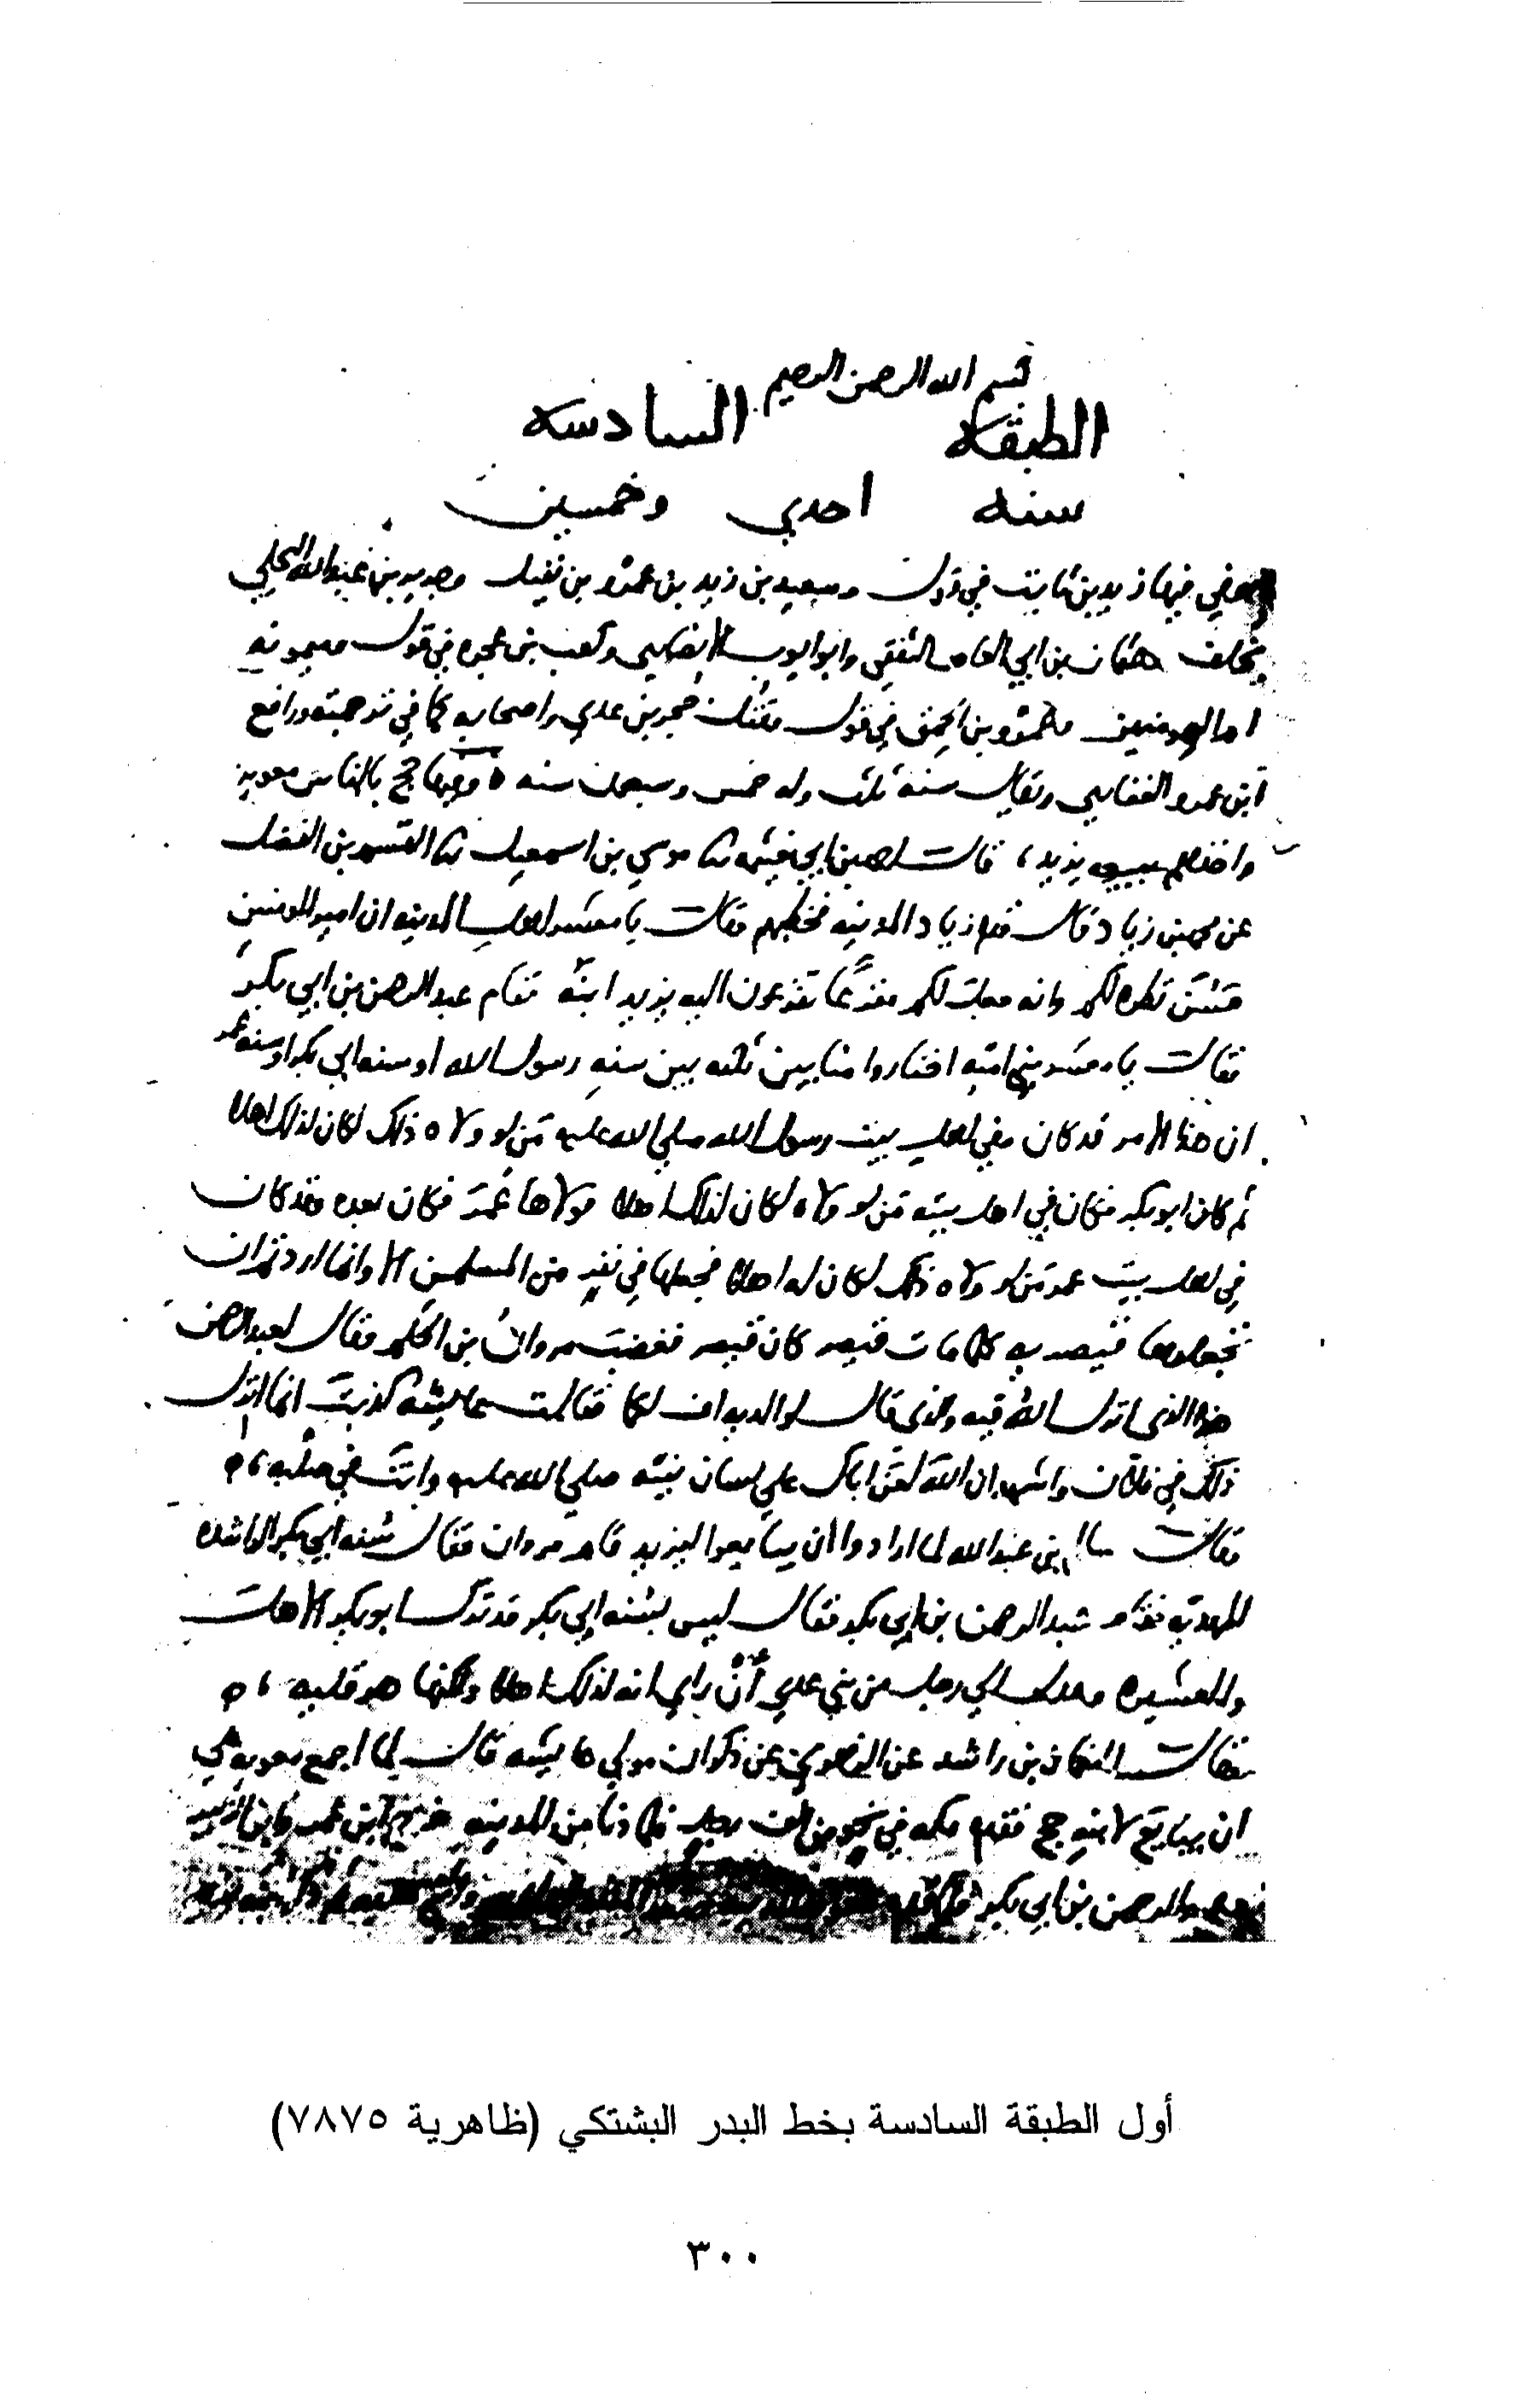 بسم الله الرحمن الرحيم
الطبقه السادسه
سنه احدي وخمسين
توفي فيها زيد بن ثابت في قول وسعيد بن زيد بن عمرو بن نفيل وجرير بن عبد الله البجلي
بخلف عثمان بن ابي العاص الثقفي وابو ايوب الانصاري وكعب بن عجره في قول ميمونه
ام المومنين وعمرو بن الحمق في قول وقتل حجر بن عدي واصحابه كما في ترجمته ورافع
ابن عمرو الغفاري ويقال سنه ثلث وله خمس وسبعون سنه ٥ وفيها حج بالناس معويه
واخذهم ببيعه يزيد، قال احمد بن ابي خيثمه ثنا موسي بن اسمعيل ثنا القسم بن الفضل
عن محمد بن زياد قال قدم زياد المدينه فخطبهم وقال يا معشر اهل المدينه ان امير المومنين
حسن نظره لكم وانه جعل لكم مفزعًا تفزعون اليه يزيد ابنه فقام عبد الرحمن بن ابي بكر
فقال يا معشر بني اميه اختاروا منا بين ثلثه بين سنه رسول الله او سنه ابي بكر او سنه عمر
ان هذا الامر قد كان وفي اهل بيت رسول الله صلي الله عليه من لو ولاه ذلك لكان لذلك اهلا
ثم كان ابو بكر فكان في اهل بيته من لو ولاه لكان لذلك اهلا فولاها عمر فكان بعده وقد كان
في اهل بيت عمر من لو ولاه ذلك لكان له اهلا فجعلها في نفر من المسلمين الا وانما اردتم ان
تجعلوها قيصريه كلما مات قيصر كان قيصر فغضب مروان بن الحكم وقال لعبد الرحمن
هذا الذي انزل الله فيه والذي قال لوالديه اف لكما فقالت عايشه كذبت انما انزل
ذلك في فلان واشهد ان الله لعن اباك علي لسان نبيه صلي الله عليه وانت في صلبه،
وقال سالم بن عبد الله لما ارادوا ان يبايعوا ليزيد قام مروان فقال سنه ابي بكر الراشده
المهديه فقام عبد الرحمن بن ابي بكر فقال ليس بسنه ابي بكر قد ترك ابو بكر الاهل
والعشيره وعدل الي رجل من بني عدي أن راي انه لذلك اهلا ولكنها هرقليه،
وقال النعمان بن راشد عن الزهري عن ذكوان مولي عايشه قال لما اجمع معويه علي
ان يبايع لابنه حج فقدم مكه في نحو من الف رجل فلما دنا من المدينه خرج ابن عمر وابن الزبير
وعبد الرحمن بن ابي بكر فلما قدم
أول الطبقة السادسة بخط البدر البشتكي (ظاهرية ٧٨٧٥)
٣٠٠